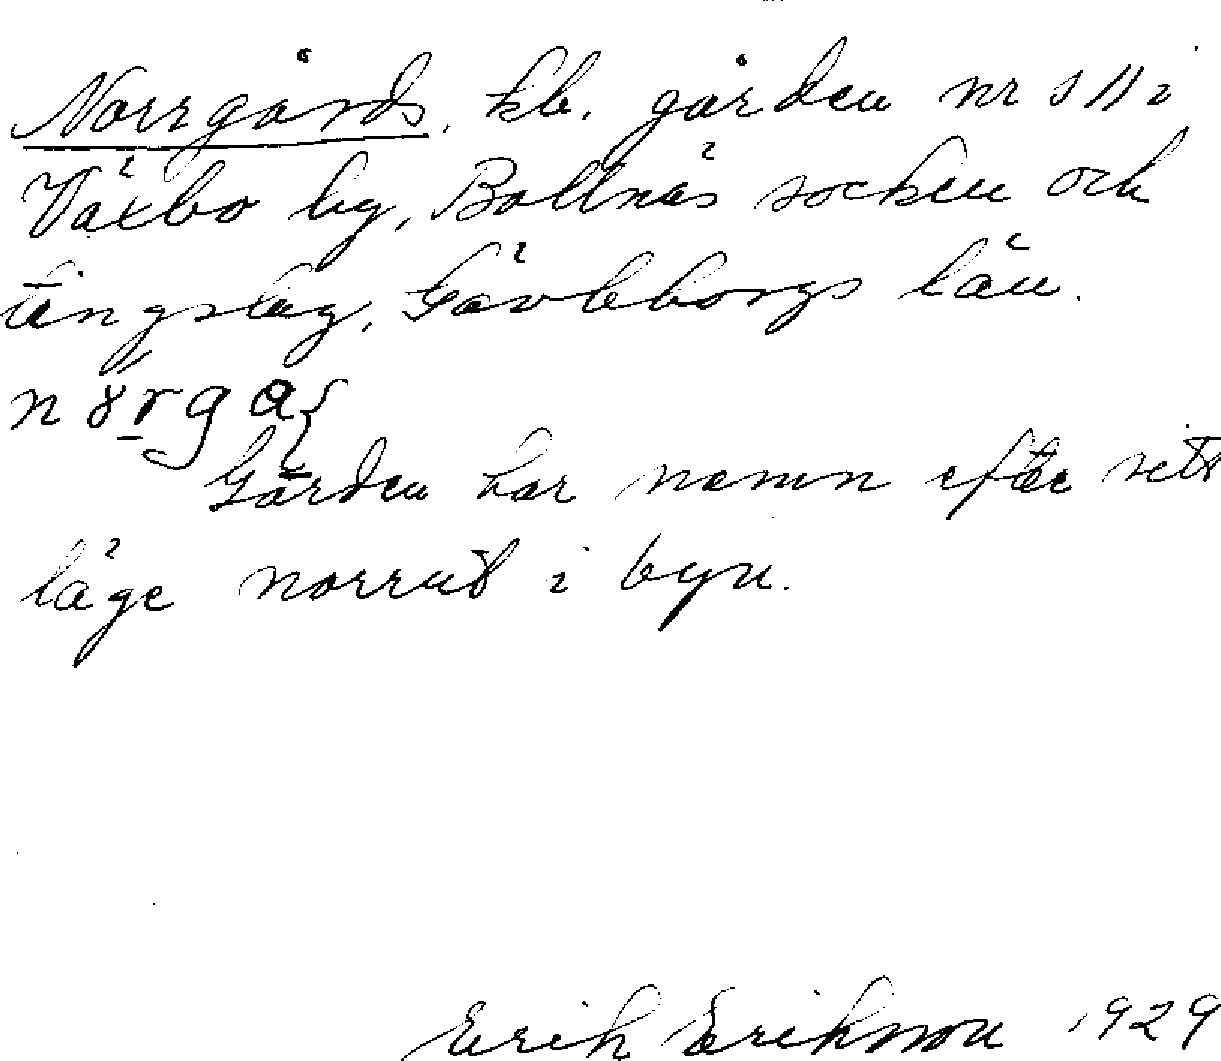 Norrgårds, kb. gården nr 511 i
Växbo by, Bollnäs socken och
tingslag, Gävleborgs län.
Gården har namn efter sitt
läge norrut i byn.
Erik Eriksson 1929